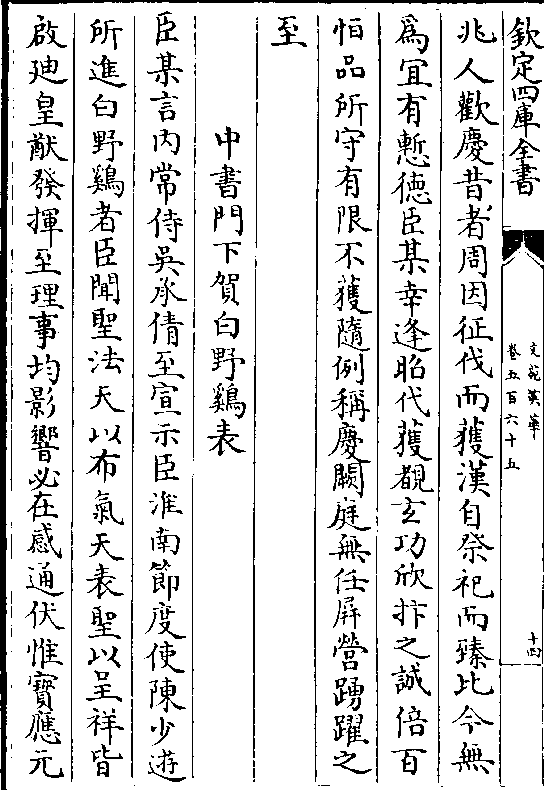 欽定四庫全書
文苑英華
卷五百六十五
十四
兆人歡慶昔者周因征伐而獲漢自祭祀而臻比今無
為宜有慙德臣某幸逢昭代獲覩玄功欣抃之誠倍百
恒品所守有限不獲隨例稱慶闕庭無任屏營踴躍之
至
中書門下賀白野鷄表
臣某言内常侍吳承倩至宣示臣淮南節度使陳少遊
所進白野鷄者臣聞聖法天以布氣天表聖以呈祥皆
啟廸皇猷發揮至理事均影響必在感通伏惟寶應元